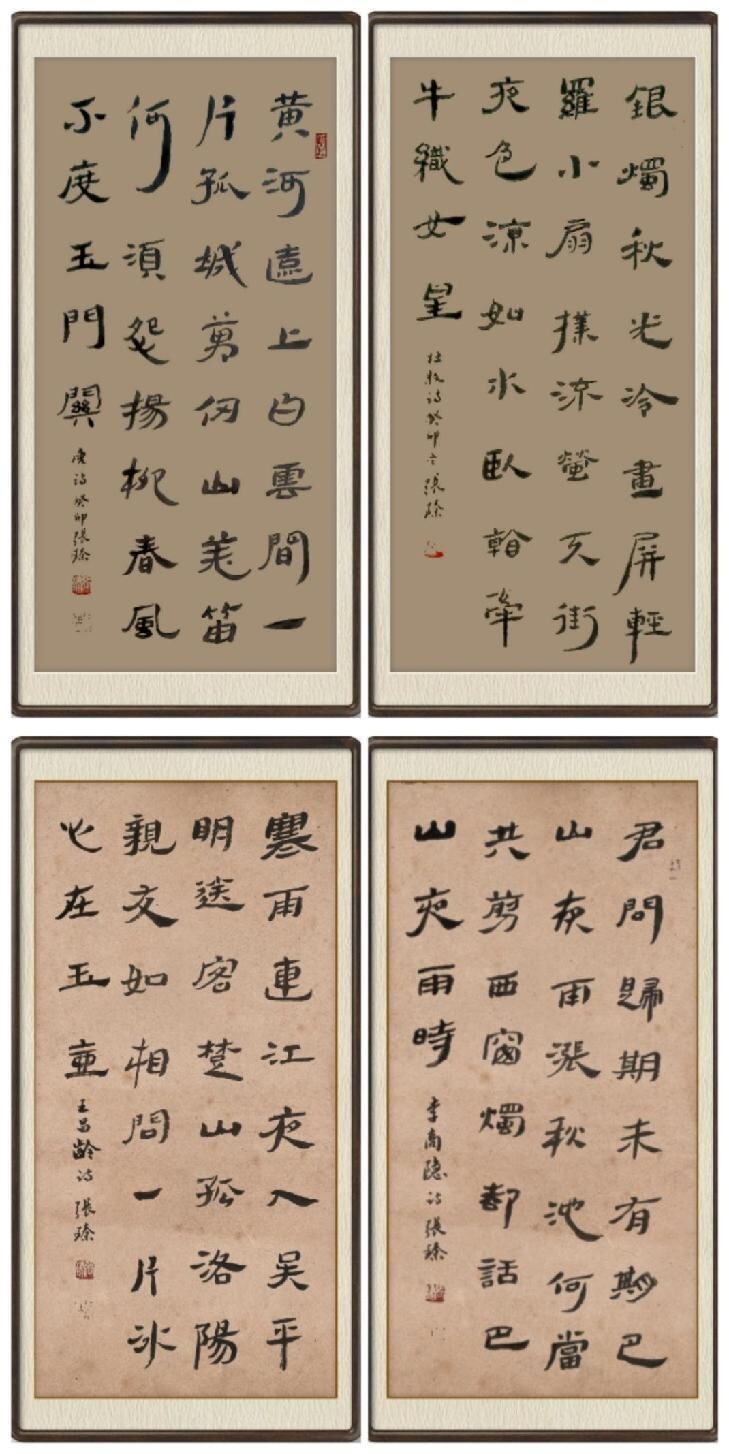 黄河遠上白雲間一
片孤城萬仞山羌笛
何須怨揚柳春風
不度玉門關
唐詩癸卯張瑧
銀燭秋光冷畫屏輕
羅小扇撲流螢天街
夜色涼如水臥看牽
牛織女星
杜牧詩癸卯張瑧
寒雨連江夜入吳平
明送客楚山孤洛陽
親友如相問一片冰
心在玉壺
王昌齡詩張瑧
君問歸期未有期巴
山夜雨漲秋池何當
共剪西窗燭卻話巴
山夜雨時
李商隱詩張瑧